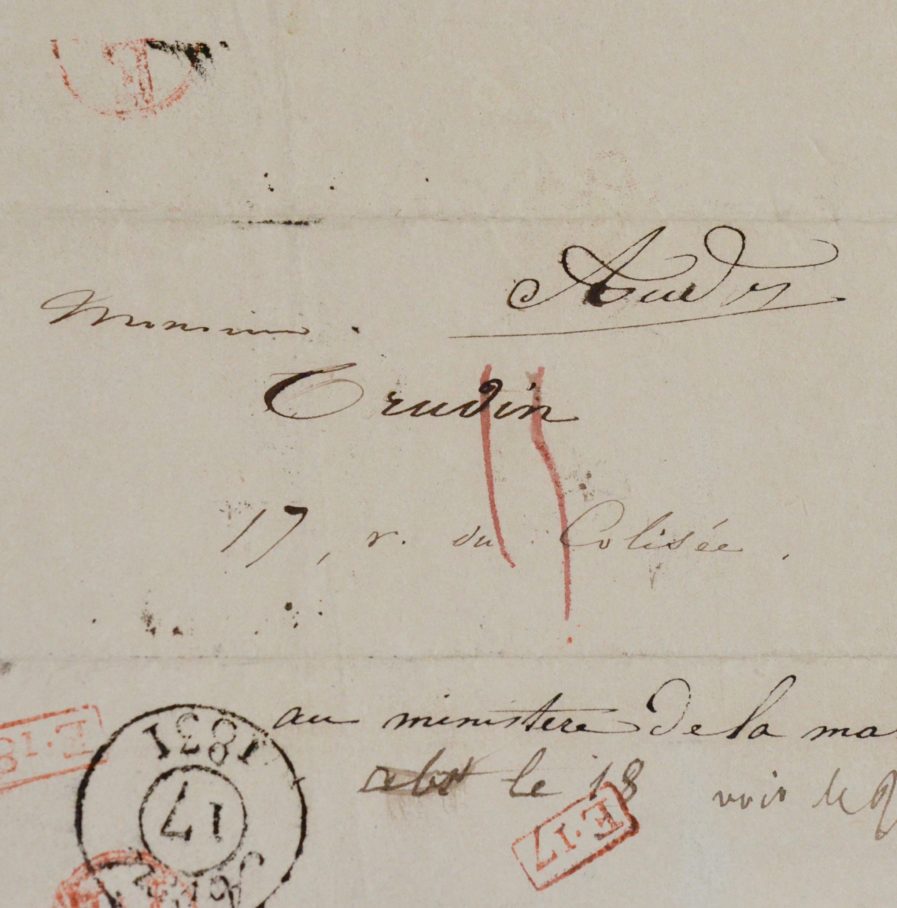 E
Monsieur
Trudin
17, r. du Colisée.
au ministere de la ma
le 18 voir le
E·18
1831
17
E·17